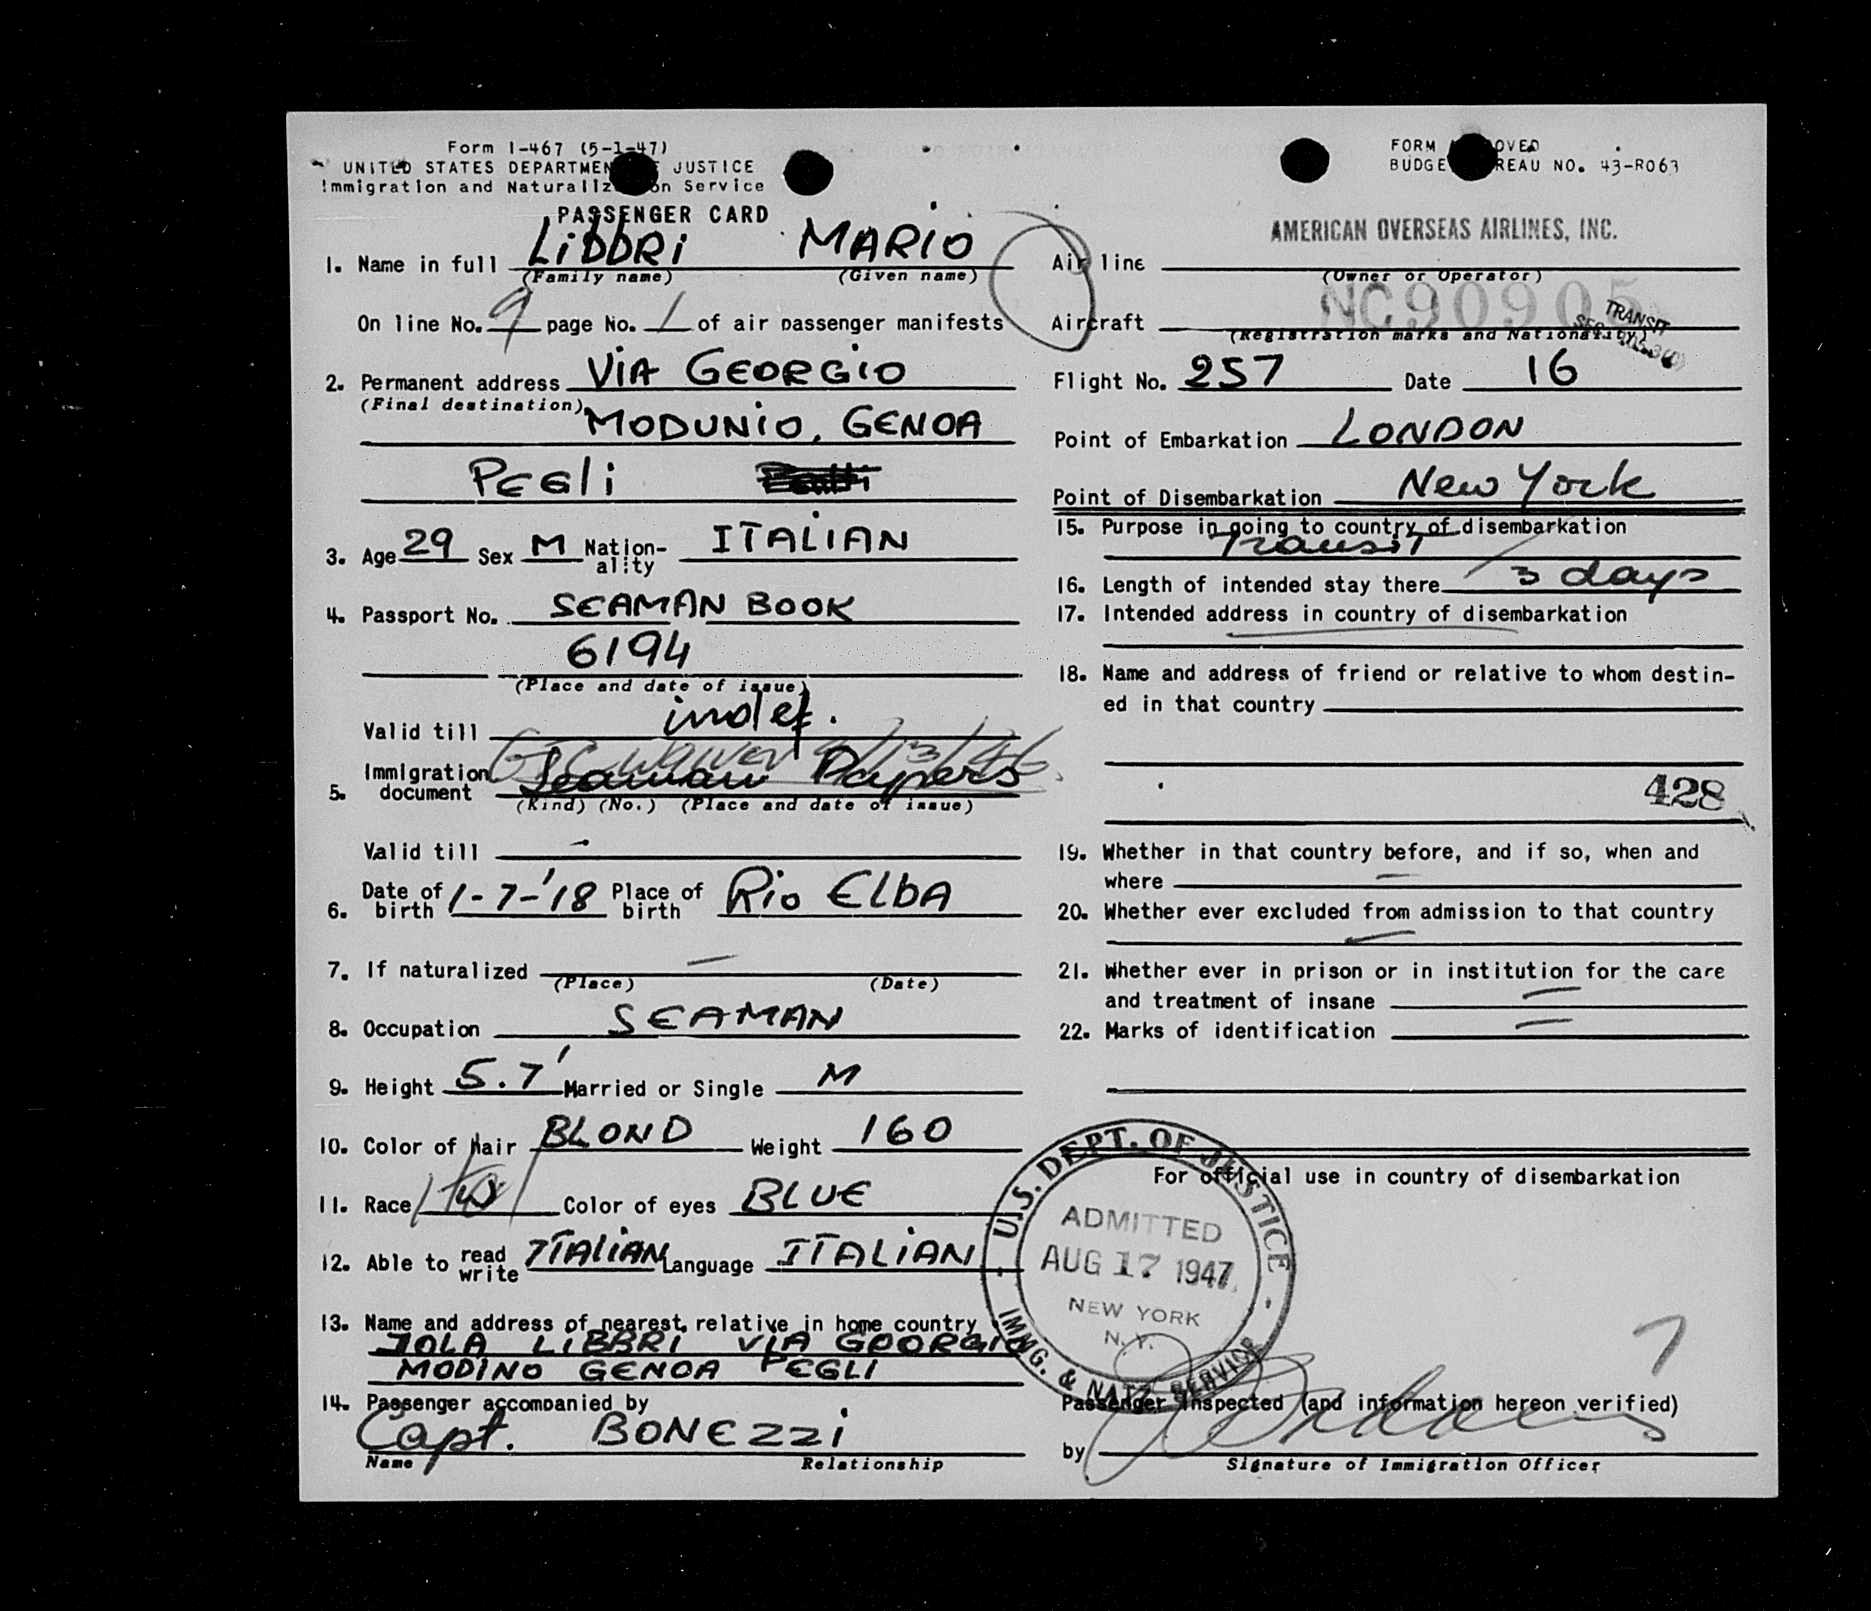 Form I-467 (5-1-47)
UNITED STATES DEPARTMENT OF JUSTICE
Immigration and Naturalization Service
PASSENGER CARD
1. Name in full LiBBRi MARIO
(Family name) (Given name)
On line No. 9 page No. 1 of air passenger manifests
2. Permanent address ViA GEORGIO
(Final destination)
MODUNIO, GENOA
PEGLi
3. Age 29 Sex M Nation-ality ITALIAN
4. Passport No. SEAMAN BOOK
6194
(Place and date of issue)
Valid till indef.
5. Immigration document Seaman Papers
(Kind) (No.) (Place and date of issue)
Valid till -
6. Date of birth 1-7-'18 Place of birth Rio ELBA
7. If naturalized —
(Place) (Date)
8. Occupation SEAMAN
9. Height 5.7' Married or Single M
10. Color of Hair BLOND Weight 160
11. Race W Color of eyes BLUE
12. Able to read write ITALIAN Language ITALIAN
13. Name and address of nearest relative in home country
LIBBRI VIA GEORGIO
MODINO GENOA PEGLI
14. Passenger accompanied by
Capt. BONEZZI
Name Relationship
FORM APPROVED
BUDGET BUREAU NO. 43-R063
AMERICAN OVERSEAS AIRLINES, INC.
Air line
(Owner or Operator)
NC90905
TRANSIT
Aircraft
(Registration marks and Nationality)
Flight No. 257 Date 16
Point of Embarkation LONDON
Point of Disembarkation New York
15. Purpose in going to country of disembarkation
Transit
16. Length of intended stay there 3 days
17. Intended address in country of disembarkation
18. Name and address of friend or relative to whom destin-
ed in that country
428
19. Whether in that country before, and if so, when and
where —
20. Whether ever excluded from admission to that country
—
21. Whether ever in prison or in institution for the care
and treatment of insane —
22. Marks of identification —
For official use in country of disembarkation
U.S. DEPT. OF JUSTICE
ADMITTED
AUG 17 1947
NEW YORK
N.Y.
IMMG. & NATZ. SERVICE
7
Passenger inspected (and information hereon verified)
by
Signature of Immigration Officer